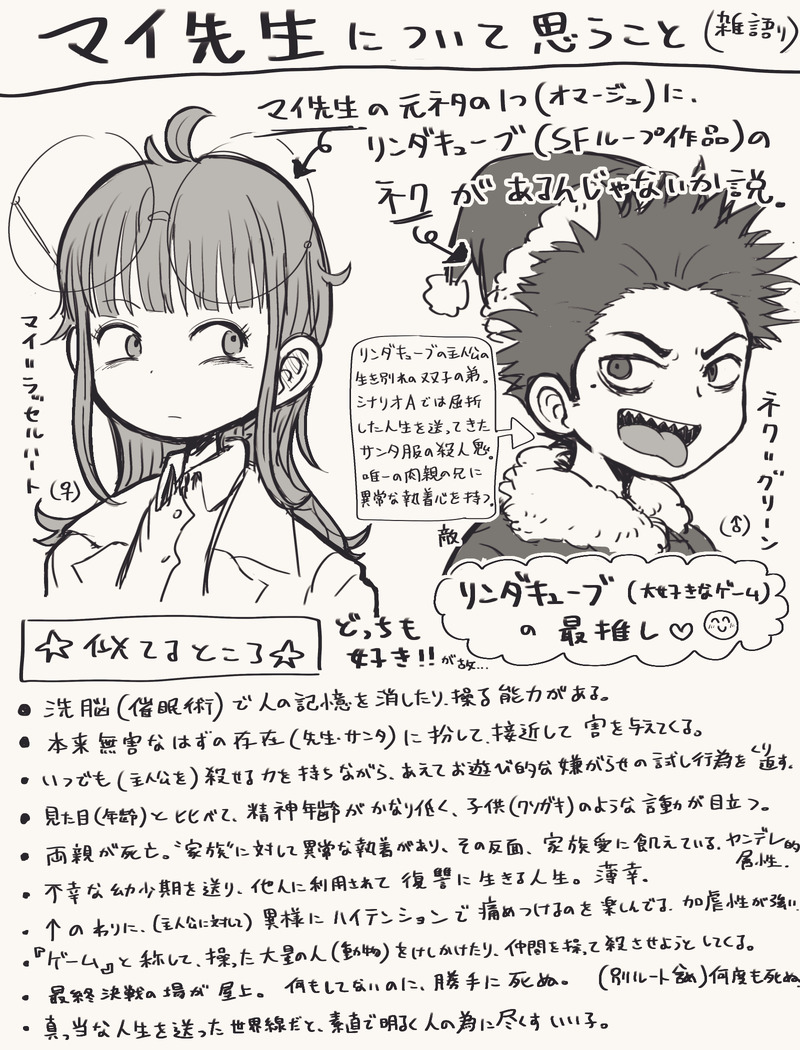 マイ先生 について思うこと (雑語り)
マイ先生の元ネタの1つ(オマージュ)に、
リンダキューブ(SFループ作品)の
ネクがあるんじゃないか説。
マイ=ラッセルハート
(♀)
リンダキューブの主人公の
生き別れの双子の弟。
シナリオAでは屈折
した人生を送ってきた
サンタ服の殺人鬼。
唯一の肉親の兄に
異常な執着心を持つ。
敵
ネク=グリーン
(♂)
リンダキューブ (大好きなゲーム)
の最推し♡
☆似てるところ☆
どっちも
好き!!が故…
● 洗脳(催眠術)で人の記憶を消したり、操る能力がある。
● 本来無害なはずの存在(先生・サンタ)に扮して、接近して 害を与えてくる。
・ いつでも(主人公を)殺せる力を持ちながら、あえてお遊び的な嫌がらせの試し行為をくり返す。
● 見た目(年齢)と比べて、精神年齢がかなり低く、子供(クソガキ)のような言動が目立つ。
● 両親が死亡。"家族"に対して異常な執着があり、その反面、家族愛に飢えている。ヤンデレ的属性.
・ 不幸な幼少期を送り、他人に利用されて復讐に生きる人生。薄幸.
・ ↑のわりに、(主人公に対して)異様にハイテンションで痛めつけるのを楽しんでる。加虐性が強い
・『ゲーム』と称して、操った大量の人(動物)をけしかけたり、仲間を操って殺させようとしてくる。
・ 最終決戦の場が屋上。 何もしてないのに、勝手に死ぬ。 (別ルート含め)何度も死ぬ
・ 真っ当な人生を送った世界線だと、素直で明るく人の為に尽くすいい子。